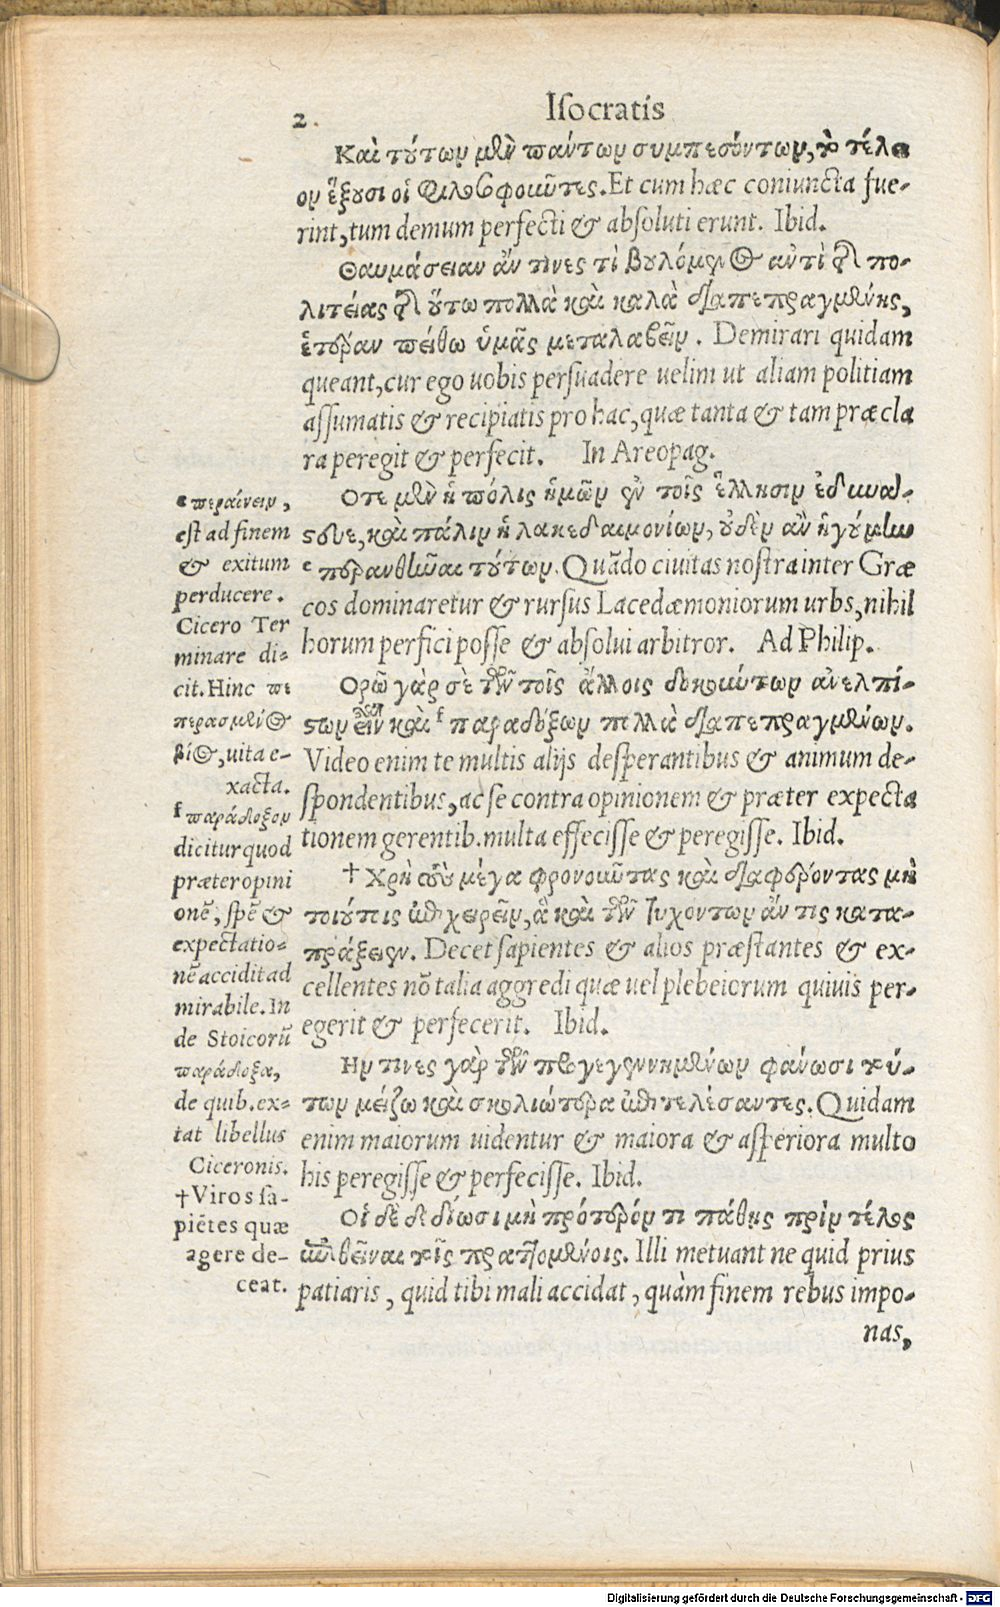 2. Isocratis
Καὶ τούτων μὲν πάντων συμπεσόντων, τὸ τέλει
ον ἕξουσι οἱ φιλοσοφοῦντες. Et cum hæc coniuncta fue-
rint, tum demum perfecti & absoluti erunt. Ibid.
Θαυμάσειαν ἄν τινες τί βουλόμενος ἀντὶ τῆς πο-
λιτείας τῆς οὕτω πολλὰ καὶ καλὰ διαπεπραγμένης,
ἑτέραν πείθω ὑμᾶς μεταλαβεῖν. Demirari quidam
queant, cur ego uobis persuadere uelim ut aliam politiam
assumatis & recipiatis pro hac, quæ tanta & tam præcla
ra peregit & perfecit. In Areopag.
Οτε μὲν ἡ πόλις ἡμῶν ἐν τοῖς ἕλλησιν ἐδυναϛ-
ϛευε, καὶ πάλιν ἡ λακεδαιμονίων, οὐδὲν ἂν ἡγούμην
e περανθῆναι τούτων. Quãdo ciuitas nostra inter Græ
cos dominaretur & rursus Lacedæmoniorum urbs, nihil
horum perfici posse & absolui arbitror. Ad Philip.
Ορῶ γάρ σὲ τῶν τοῖς ἄλλοις δοκούντων ἀνελπί-
ϛων εἶναι καὶ f παραδόξων πολλὰ διαπεπραγμένων.
Video enim te multis alijs desperantibus & animum de-
spondentibus, ac se contra opinionem & præter expecta
tionem gerentib. multa effecisse & peregisse. Ibid.
† Χρὴ τοὺς μέγα φρονοῦντας καὶ διαφέροντας μὴ
τοιούτοις ἐπιχειρεῖν, ἃ καὶ τῶν τυχόντων ἄν τις κατα-
πράξειεν. Decet sapientes & alios præstantes & ex-
cellentes nõ talia aggredi quæ uel plebeiorum quiuis per-
egerit & perfecerit. Ibid.
Ην τινες γὰρ τῶν προγεγενημένων φανῶσι τού-
των μείζω καὶ σκολιώτερα ἐπιτελέσαντες. Quidam
enim maiorum uidentur & maiora & asperiora multo
his peregisse & perfecisse. Ibid.
Οἱ δὲ δεδίωσι μὴ πρότερόν τι πάθης πρὶν τέλος
ἐπιθεῖναι τοῖς πραττομένοις. Illi metuant ne quid prius
patiaris, quid tibi mali accidat, quàm finem rebus impo-
nas,
e περαίνειν,
est ad finem
& exitum
perducere.
Cicero Ter
minare di-
cit. Hinc πε
περασμένος
βίος, uita e-
xacta.
f παράδοξον
dicitur quod
præter opini
onẽ, spẽ &
expectatio-
nẽ accidit ad
mirabile. In
de Stoicorũ
παράδοξα,
de quib. ex-
tat libellus
Ciceronis.
† Viros sa-
piẽtes quæ
agere de-
ceat.
Digitalisierung gefördert durch die Deutsche Forschungsgemeinschaft - DFG